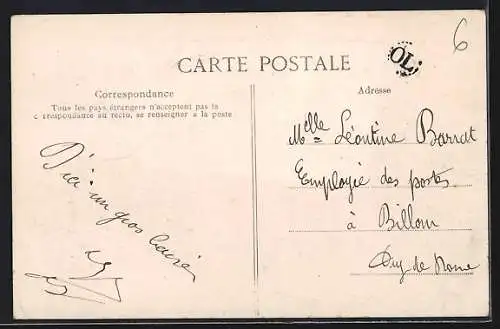 6
CARTE POSTALE
OL
Correspondance
Tous les pays étrangers n'acceptent pas la
correspondance au recto, se renseigner à la poste
Adresse
D'ici un gros baiser
Melle Léontine Barrat
Employée des postes
à Billom
Puy de Dome